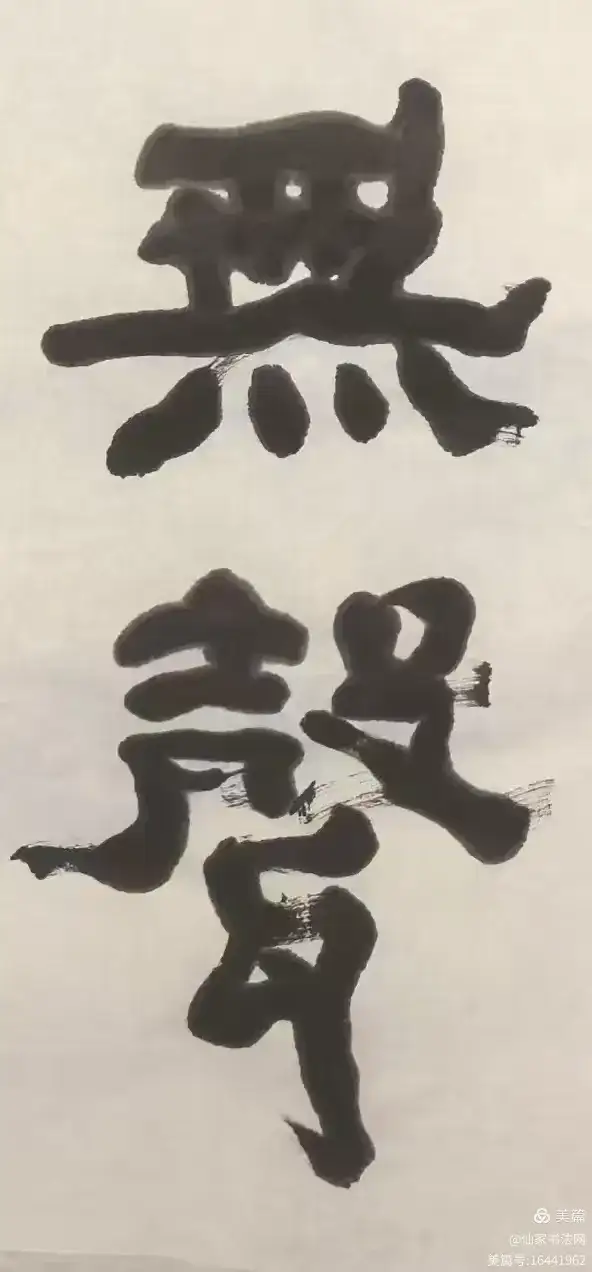 無聲
美篇
@仙家书法网
美篇号:16441962